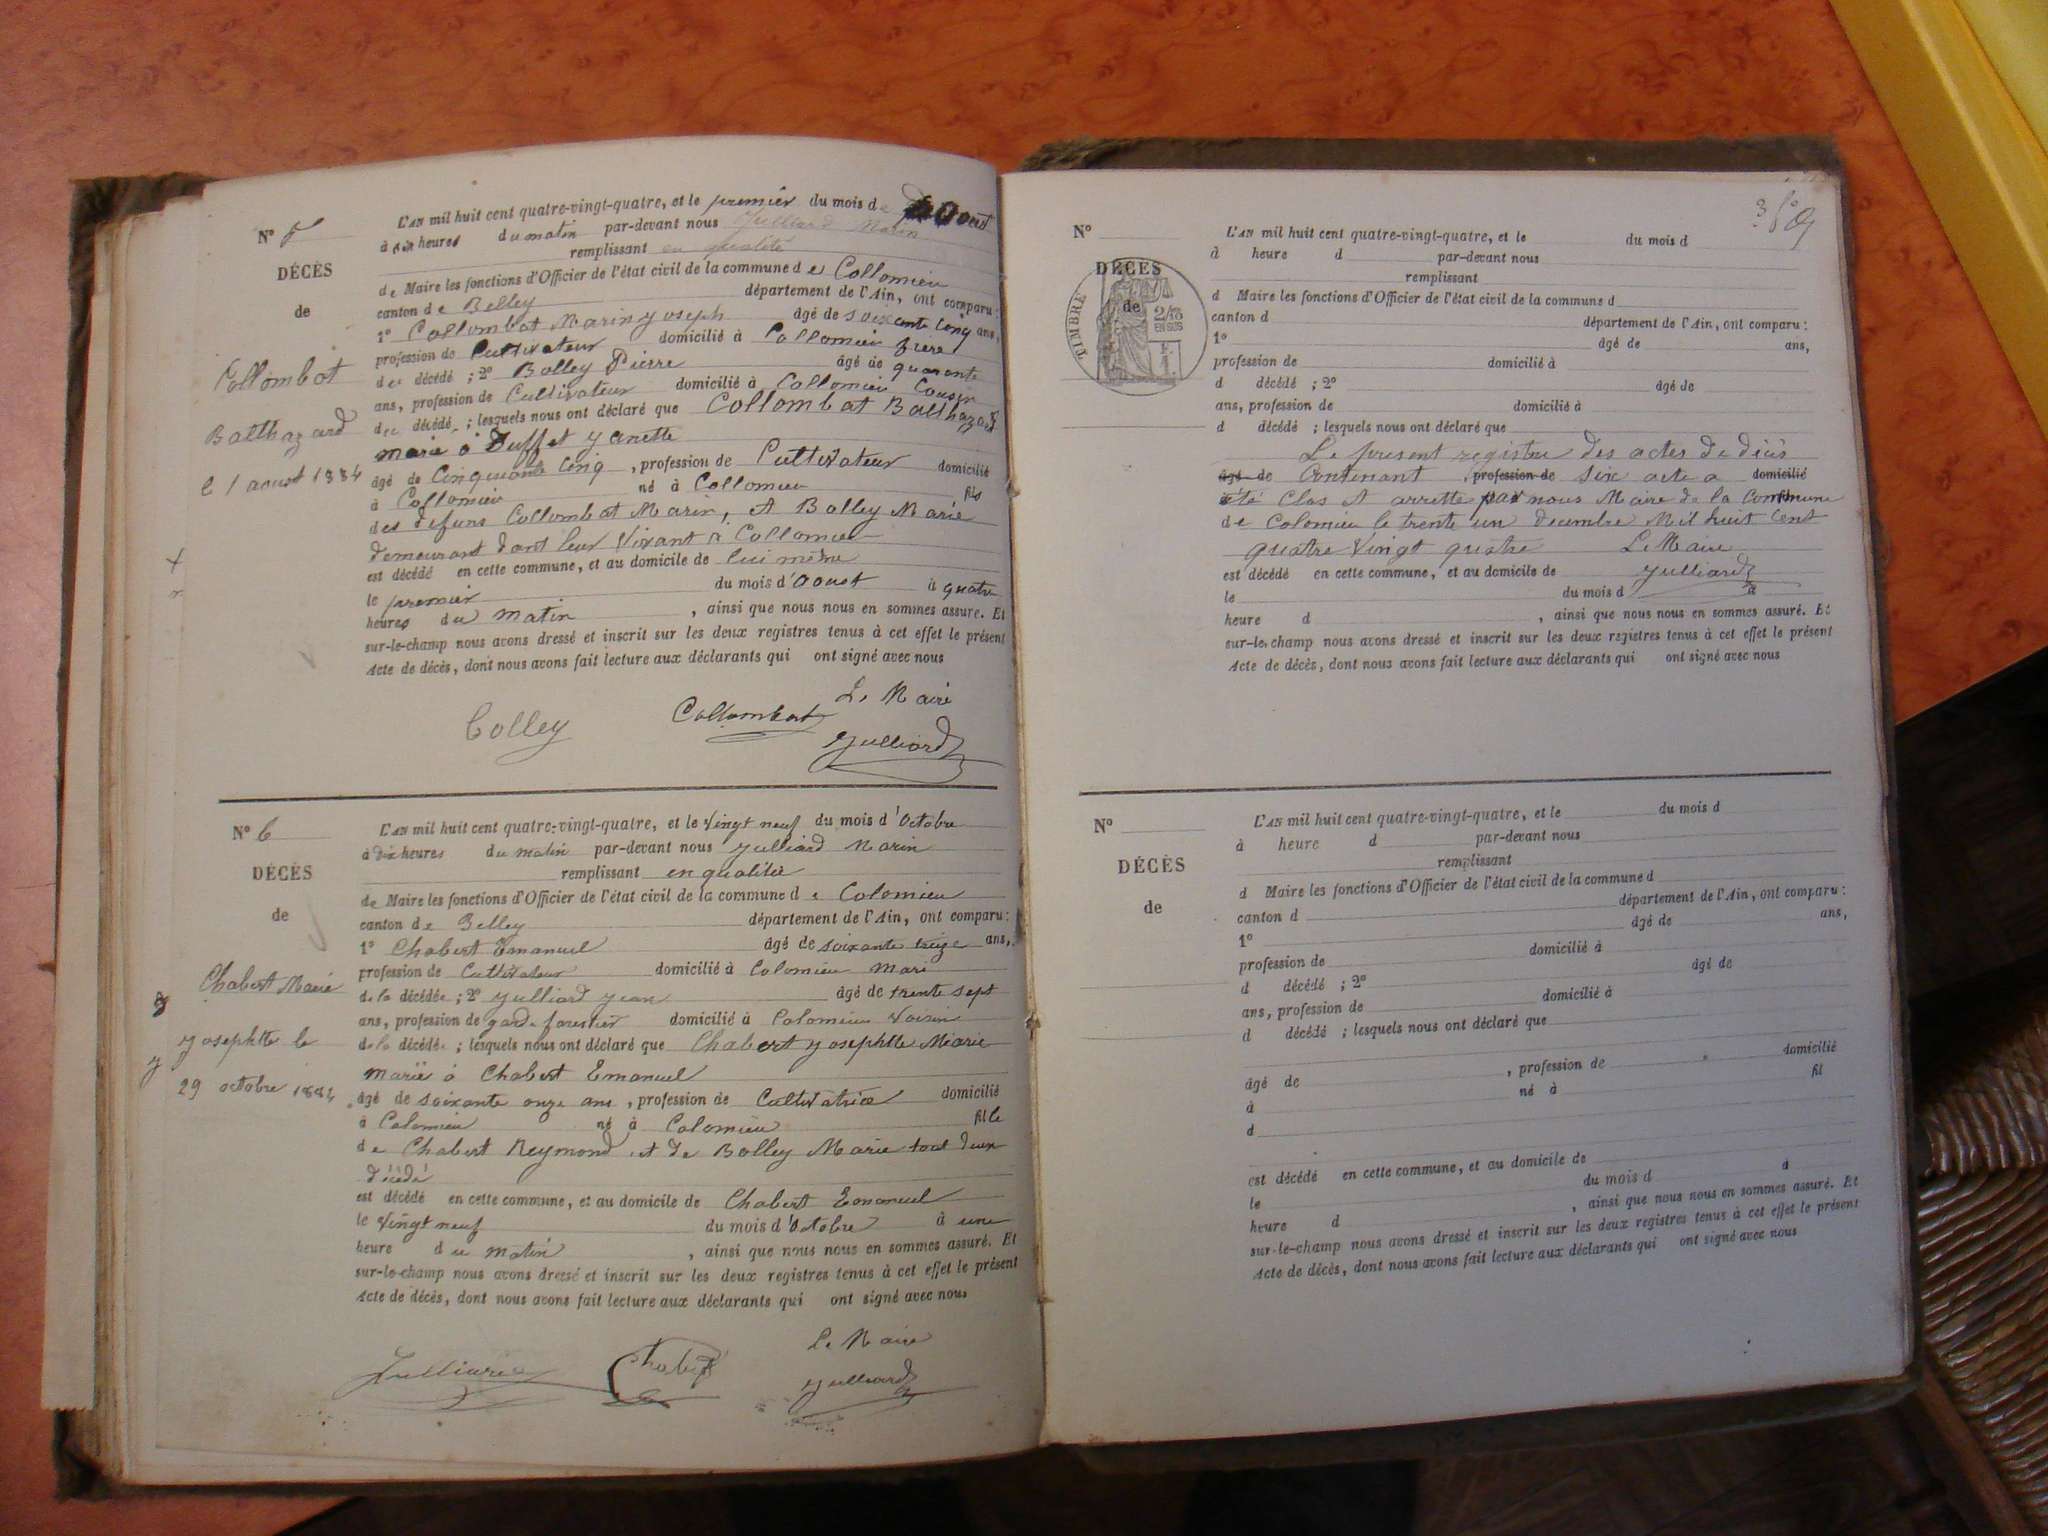 N° 5
DÉCÈS
de
Collombat
Balthazard
l 1 aoust 1884
L'AN mil huit cent quatre-vingt-quatre, et le premier du mois de Aoust
à six heures du matin par-devant nous Julliard Marin
remplissant en qualité
de Maire les fonctions d'Officier de l'état civil de la commune de Collomieu
canton de Belley département de l'Ain, ont comparu :
1° Collombat Marin yoseph âgé de soixante cinq ans,
profession de Cultivateur domicilié à Collomieu frère
du décédé ; 2° Bolley Pierre âgé de quarante
ans, profession de Cultivateur domicilié à Collomieu Cousin
du décédé ; lesquels nous ont déclaré que Collombat Balthazard
marié à Duffet yanette
âgé de Cinquante Cinq , profession de Cultivateur domicilié
à Collomieu né à Collomieu fils
des defuns Collombat Marin, et Bolley Marie
demeurant dant leur vivant à Collomieu
est décédé en cette commune, et au domicile de lui même
le premier du mois d'Aoust à quatre
heures du matin , ainsi que nous nous en sommes assuré. Et
sur-le-champ nous avons dressé et inscrit sur les deux registres tenus à cet effet le présent
Acte de décès, dont nous avons fait lecture aux déclarants qui ont signé avec nous
Le Maire
Bolley Collombat Julliard
N° 6
DÉCÈS
de
Chabert Marie
yosephtte le
29 octobre 1884
L'AN mil huit cent quatre-vingt-quatre, et le vingt neuf du mois d'Octobre
à dix heures du matin par-devant nous Julliard Marin
remplissant en qualité
de Maire les fonctions d'Officier de l'état civil de la commune de Colomieu
canton de Belley département de l'Ain, ont comparu :
1° Chabert Emanuel âgé de soixante treize ans,
profession de Cultivateur domicilié à Colomieu mari
de la décédée ; 2° Julliard yean âgé de trente sept
ans, profession de garde forestier domicilié à Colomieu voisin
de la décédée ; lesquels nous ont déclaré que Chabert yosephtte Marie
marié à Chabert Emanuel
âgé de soixante onze ans , profession de Cultivatrice domicilié
à Colomieu né à Colomieu fille
de Chabert Reymond et de Bolley Marie tout deux
décédé
est décédé en cette commune, et au domicile de Chabert Emanuel
le vingt neuf du mois d'Octobre à une
heure du matin , ainsi que nous nous en sommes assuré. Et
sur-le-champ nous avons dressé et inscrit sur les deux registres tenus à cet effet le présent
Acte de décès, dont nous avons fait lecture aux déclarants qui ont signé avec nous
Le Maire
Julliard Chabert Julliard
N°
DÉCÈS
de
TIMBRE
2/10
EN SUS
L'AN mil huit cent quatre-vingt-quatre, et le du mois d
à heure d par-devant nous
remplissant
d Maire les fonctions d'Officier de l'état civil de la commune d
canton d département de l'Ain, ont comparu :
1° âgé de ans,
profession de domicilié à
d décédé ; 2° âgé de
ans, profession de domicilié à
d décédé ; lesquels nous ont déclaré que
Le present registre des actes de décès
âgé de Contenant profession de six acte a domicilié
été Clos et arretté par nous Maire de la Commune
de Colomieu le trente un decembre Mil huit Cent
quatre Vingt quatre Le Maire
est décédé en cette commune, et au domicile de Julliard
le du mois d à
heure d , ainsi que nous nous en sommes assuré. Et
sur-le-champ nous avons dressé et inscrit sur les deux registres tenus à cet effet le présent
Acte de décès, dont nous avons fait lecture aux déclarants qui ont signé avec nous
N°
DÉCÈS
de
L'AN mil huit cent quatre-vingt-quatre, et le du mois d
à heure d par-devant nous
remplissant
d Maire les fonctions d'Officier de l'état civil de la commune d
canton d département de l'Ain, ont comparu :
1° âgé de ans,
profession de domicilié à
d décédé ; 2° âgé de
ans, profession de domicilié à
d décédé ; lesquels nous ont déclaré que
âgé de , profession de domicilié
à né à fil
d
est décédé en cette commune, et au domicile de
le du mois d à
heure d , ainsi que nous nous en sommes assuré. Et
sur-le-champ nous avons dressé et inscrit sur les deux registres tenus à cet effet le présent
Acte de décès, dont nous avons fait lecture aux déclarants qui ont signé avec nous